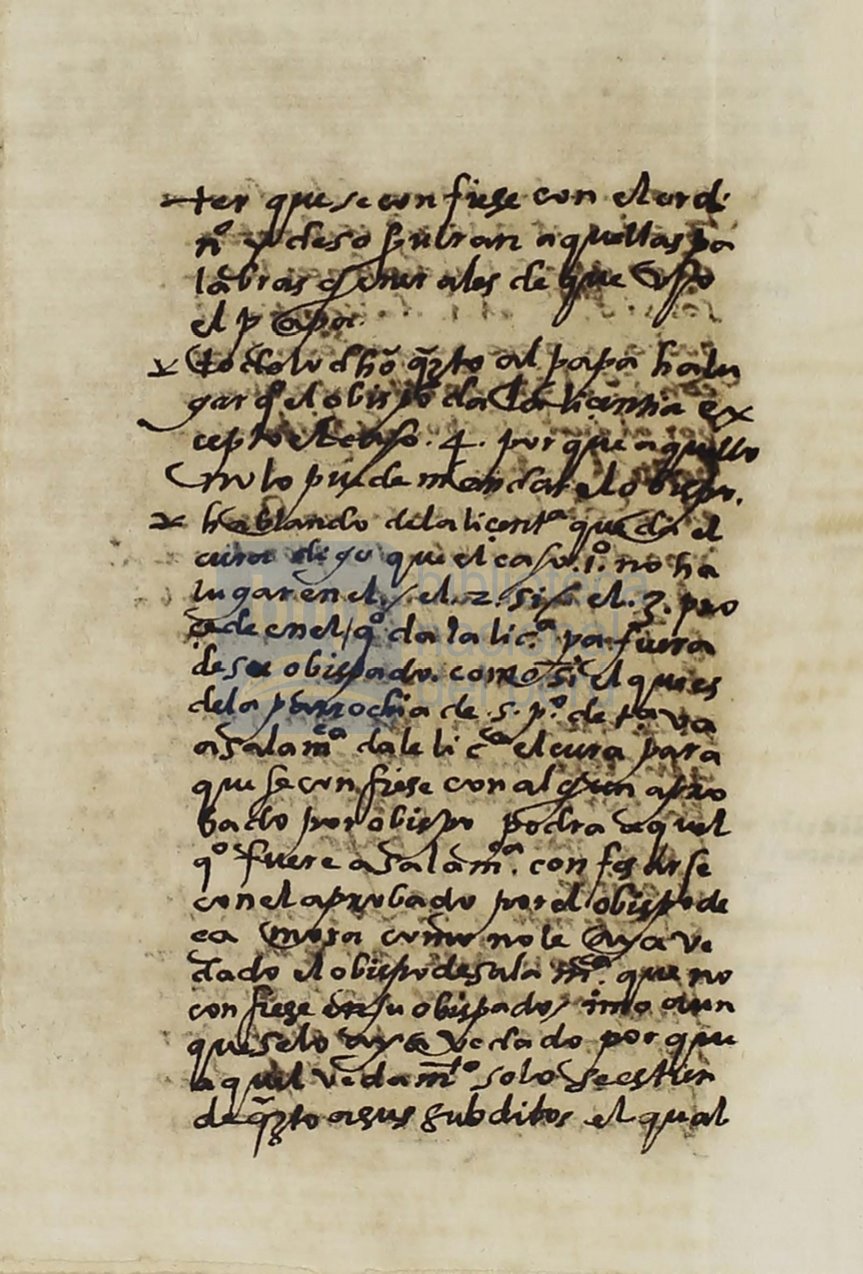 ter que se confiese con el ordi
nº y deso sirviran aquellas pa
labras generales de que uso
el papa.
todo lo dho q̃to al papa ha lu
gar qº el obispo da la licentia ex
cepto el caso .4. porque aquello
no lo puede mandar el obispo.
hablando de la licentª que da el
cura digo que el caso .1º. no ha
lugar en el, y el .2. si, y el .3. pro
cede en el, qº da la licª pa fuera
de su obispado. como si el que es
de la parrochia de .s. pº. de tª va
a salamcª dale licª el cura para
que se confiese con algun apro
bado por obispo podra aquel
qº fuere a salamª. confesarse
con el aprobado por el obispo de
ca mora como no le aya ve
dado el obispo de salamª. que no
confiese en su obispado, imo aun
que selo aya vedado porque
aquel vedamtº solo se estien
de q̃to a sus subditos el qual